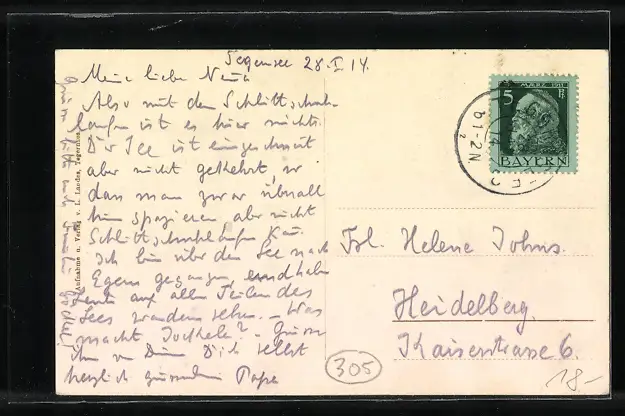 Tegernsee 28.I.14.
Meine liebe
Also mit dem Schlittschuh-
laufen ist es hier nichts.
Der See ist eingeschneit
aber nicht gekehrt, so
dass man zwar überall
hin spazieren aber nicht
Schlittschuhlaufen kann.
Ich bin über den See nach
Egern gegangen, und habe
Leute auf allen Teilen des
Sees wandern sehen. Was
macht ? Grüsse
ihn von Deinem Dich selbst
herzlich grüssenden Papa
Aufnahme u. Verlag v. L. Landes, Tegernsee
5
MÄRZ 1911
Pf
BAYERN
1-2N.
Frl. Helene Johns.
Heidelberg.
Kaiserstrasse 6.
305
18-